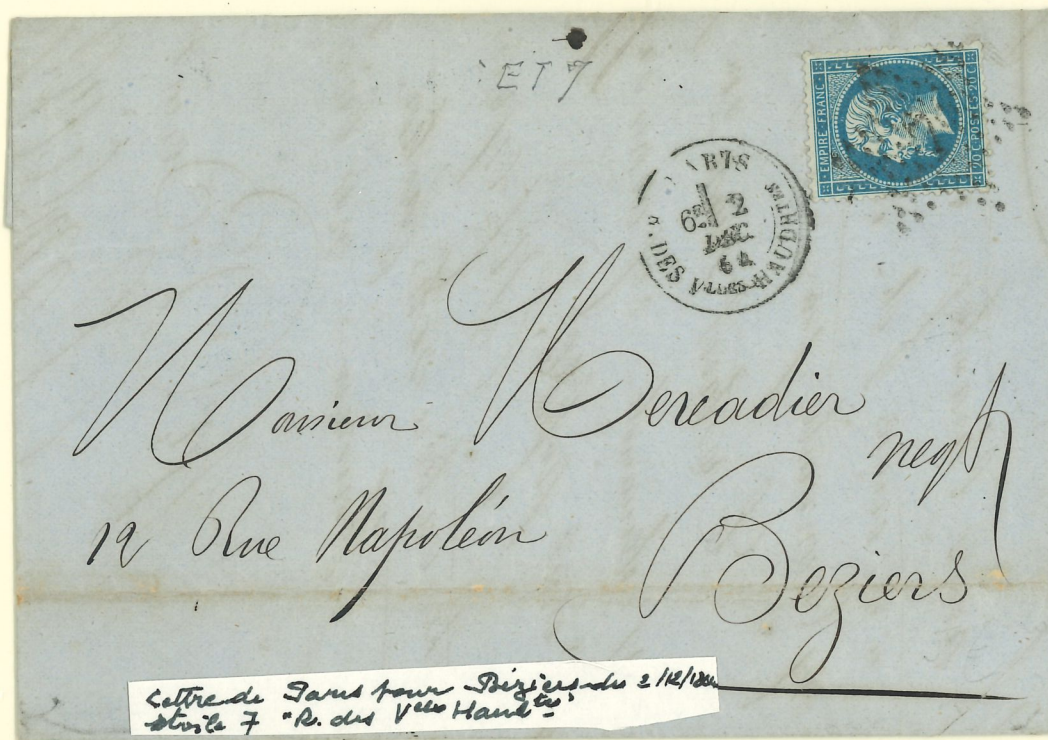 ET 7
EMPIRE FRANC.
20 C. POSTES 20 C.
PARIS
6E 2
DEC.
64
R. DES VLLES HAUDRTTES
Monsieur Mercadier
negt
12 Rue Napoléon
Beziers
Lettre de Paris pour Béziers du 2/12/1864
étoile 7 "R. des Vlles Haudtes"